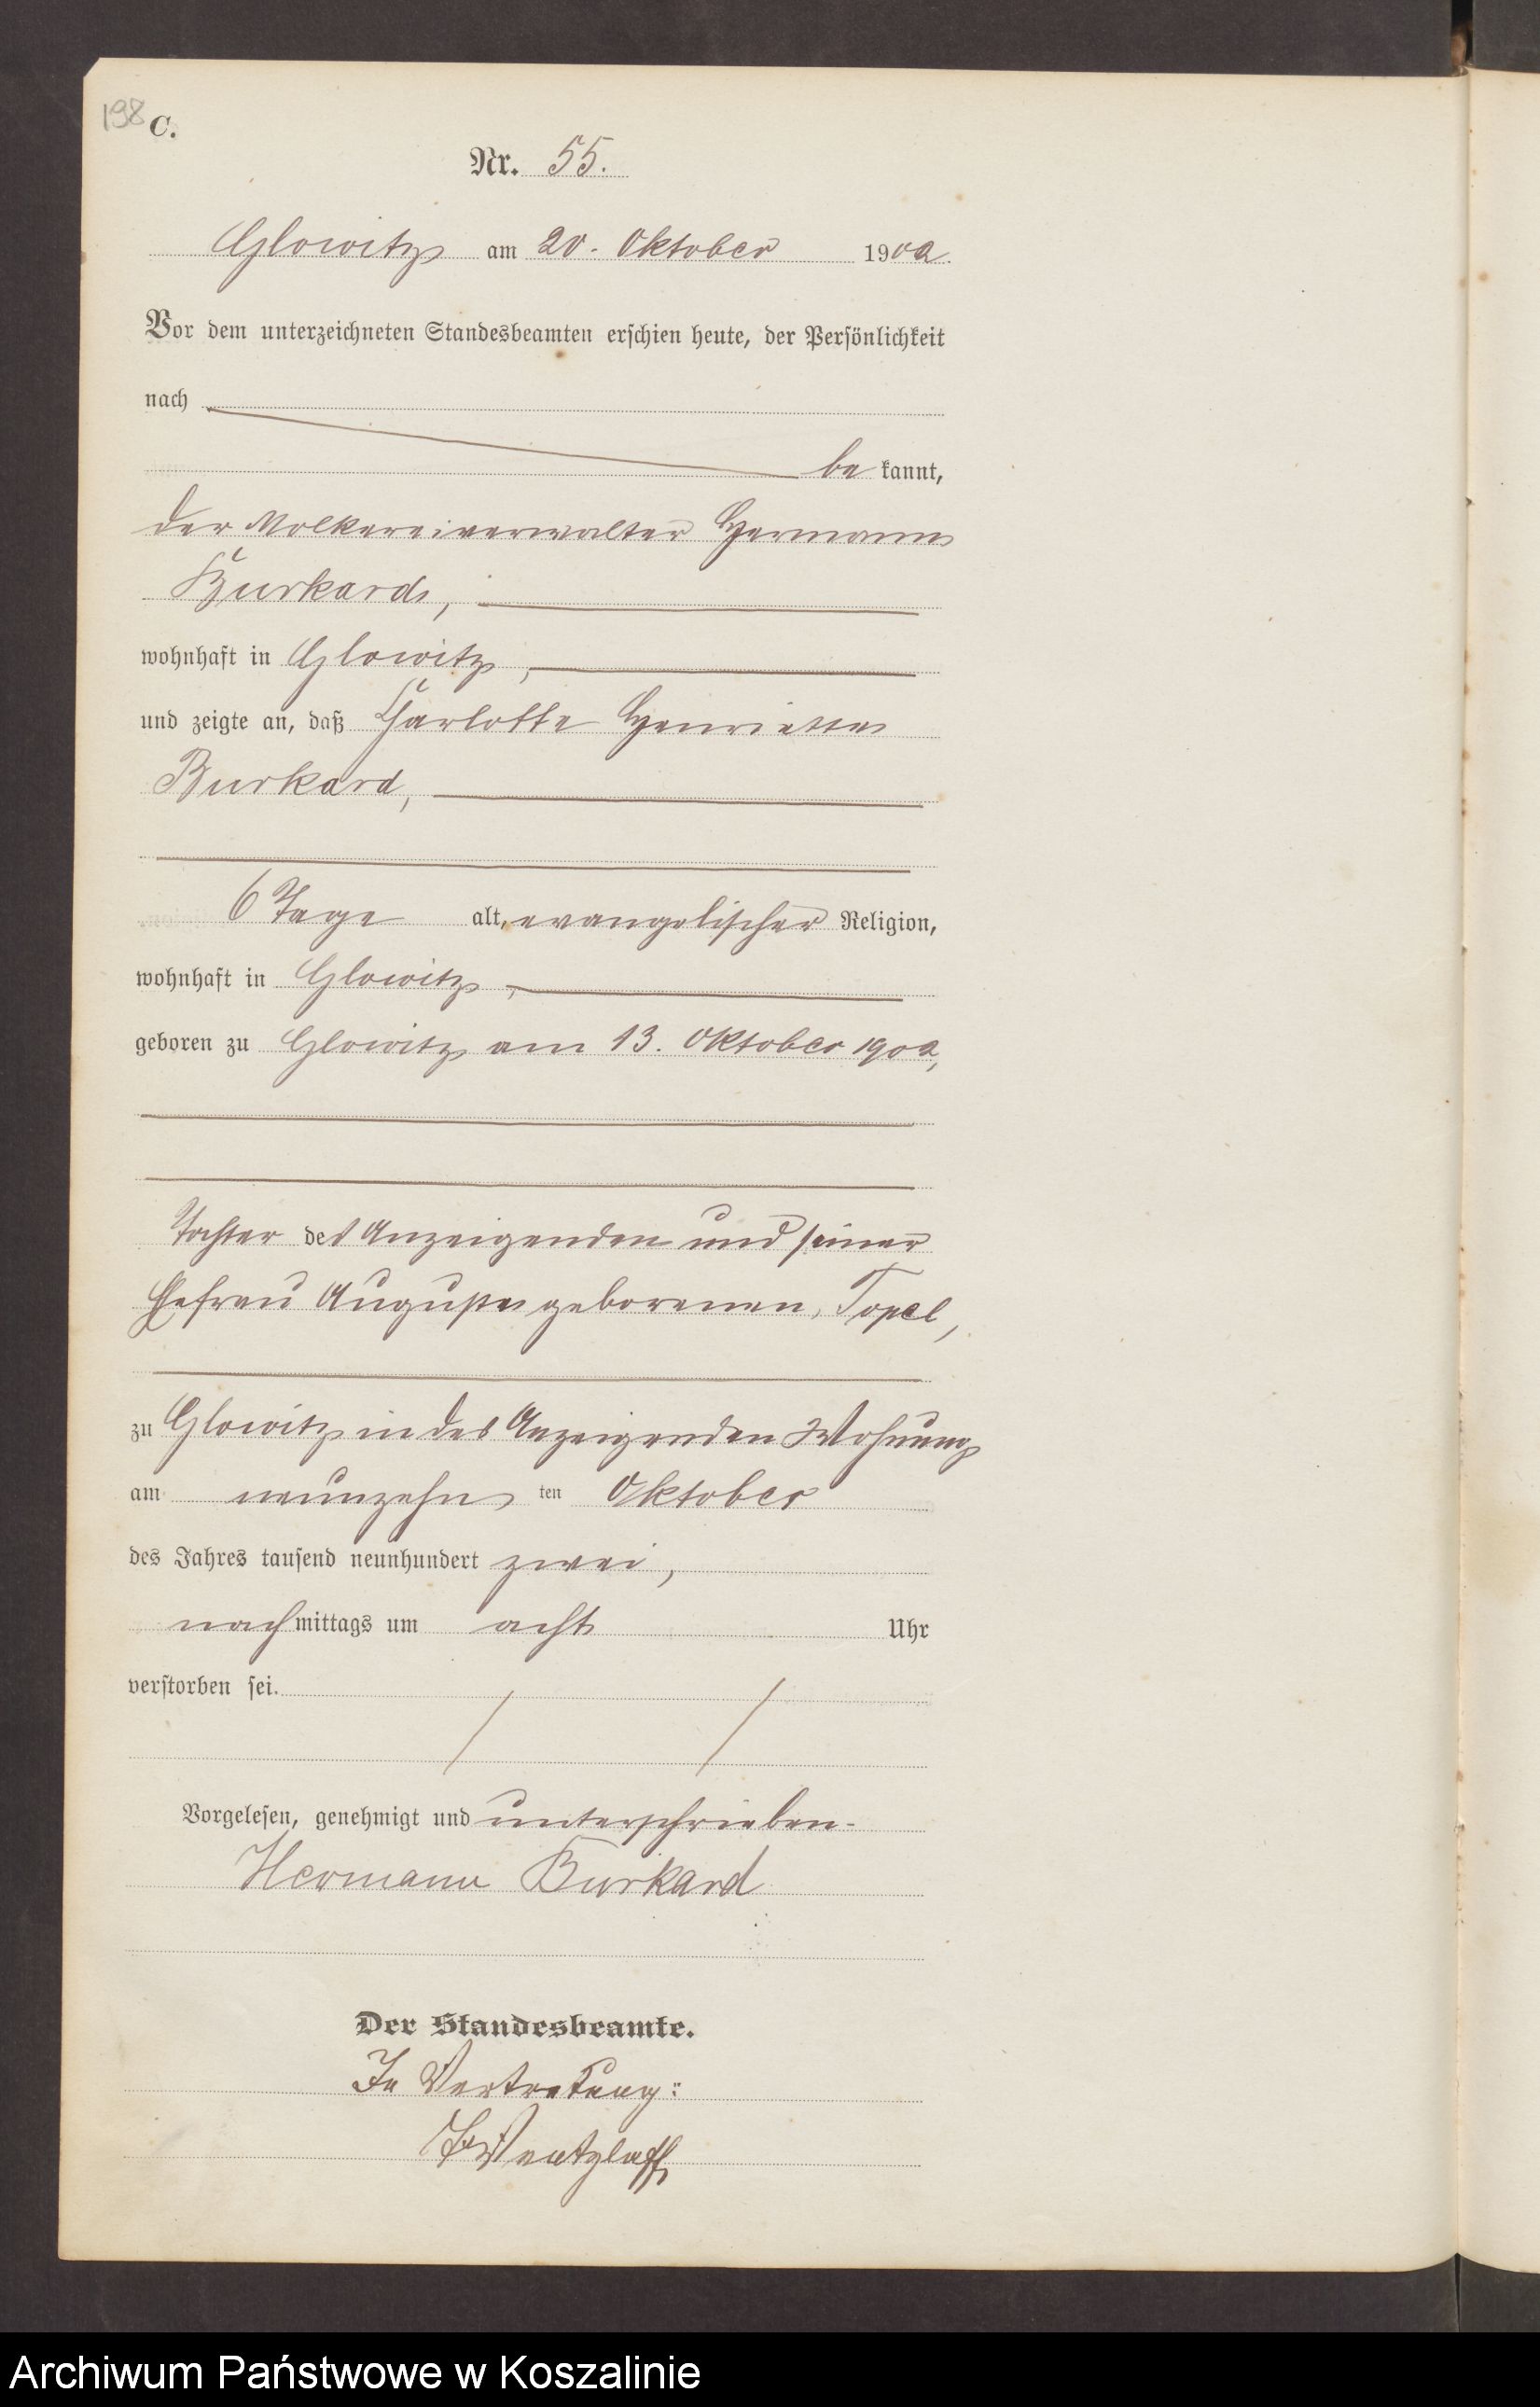 198 C.
Nr. 55.
Glowitz am 20. Oktober 1902.
Vor dem unterzeichneten Standesbeamten erschien heute, der Persönlichkeit
nach
be kannt,
der Molkereiverwalter Hermann
Burkard,
wohnhaft in Glowitz,
und zeigte an, daß Charlotte Henriette
Burkard,
6 Tage alt, evangelischer Religion,
wohnhaft in Glowitz,
geboren zu Glowitz am 13. Oktober 1902,
Tochter des Anzeigenden und seiner
Ehefrau Auguste geborenen Topel,
zu Glowitz in des Anzeigenden Wohnung
am neunzehn ten Oktober
des Jahres tausend neunhundert zwei,
nach mittags um acht Uhr
verstorben sei.
Vorgelesen, genehmigt und unterschrieben.
Hermann Burkard
Der Standesbeamte.
In Vertretung:
Wentzlaff
Archiwum Państwowe w Koszalinie